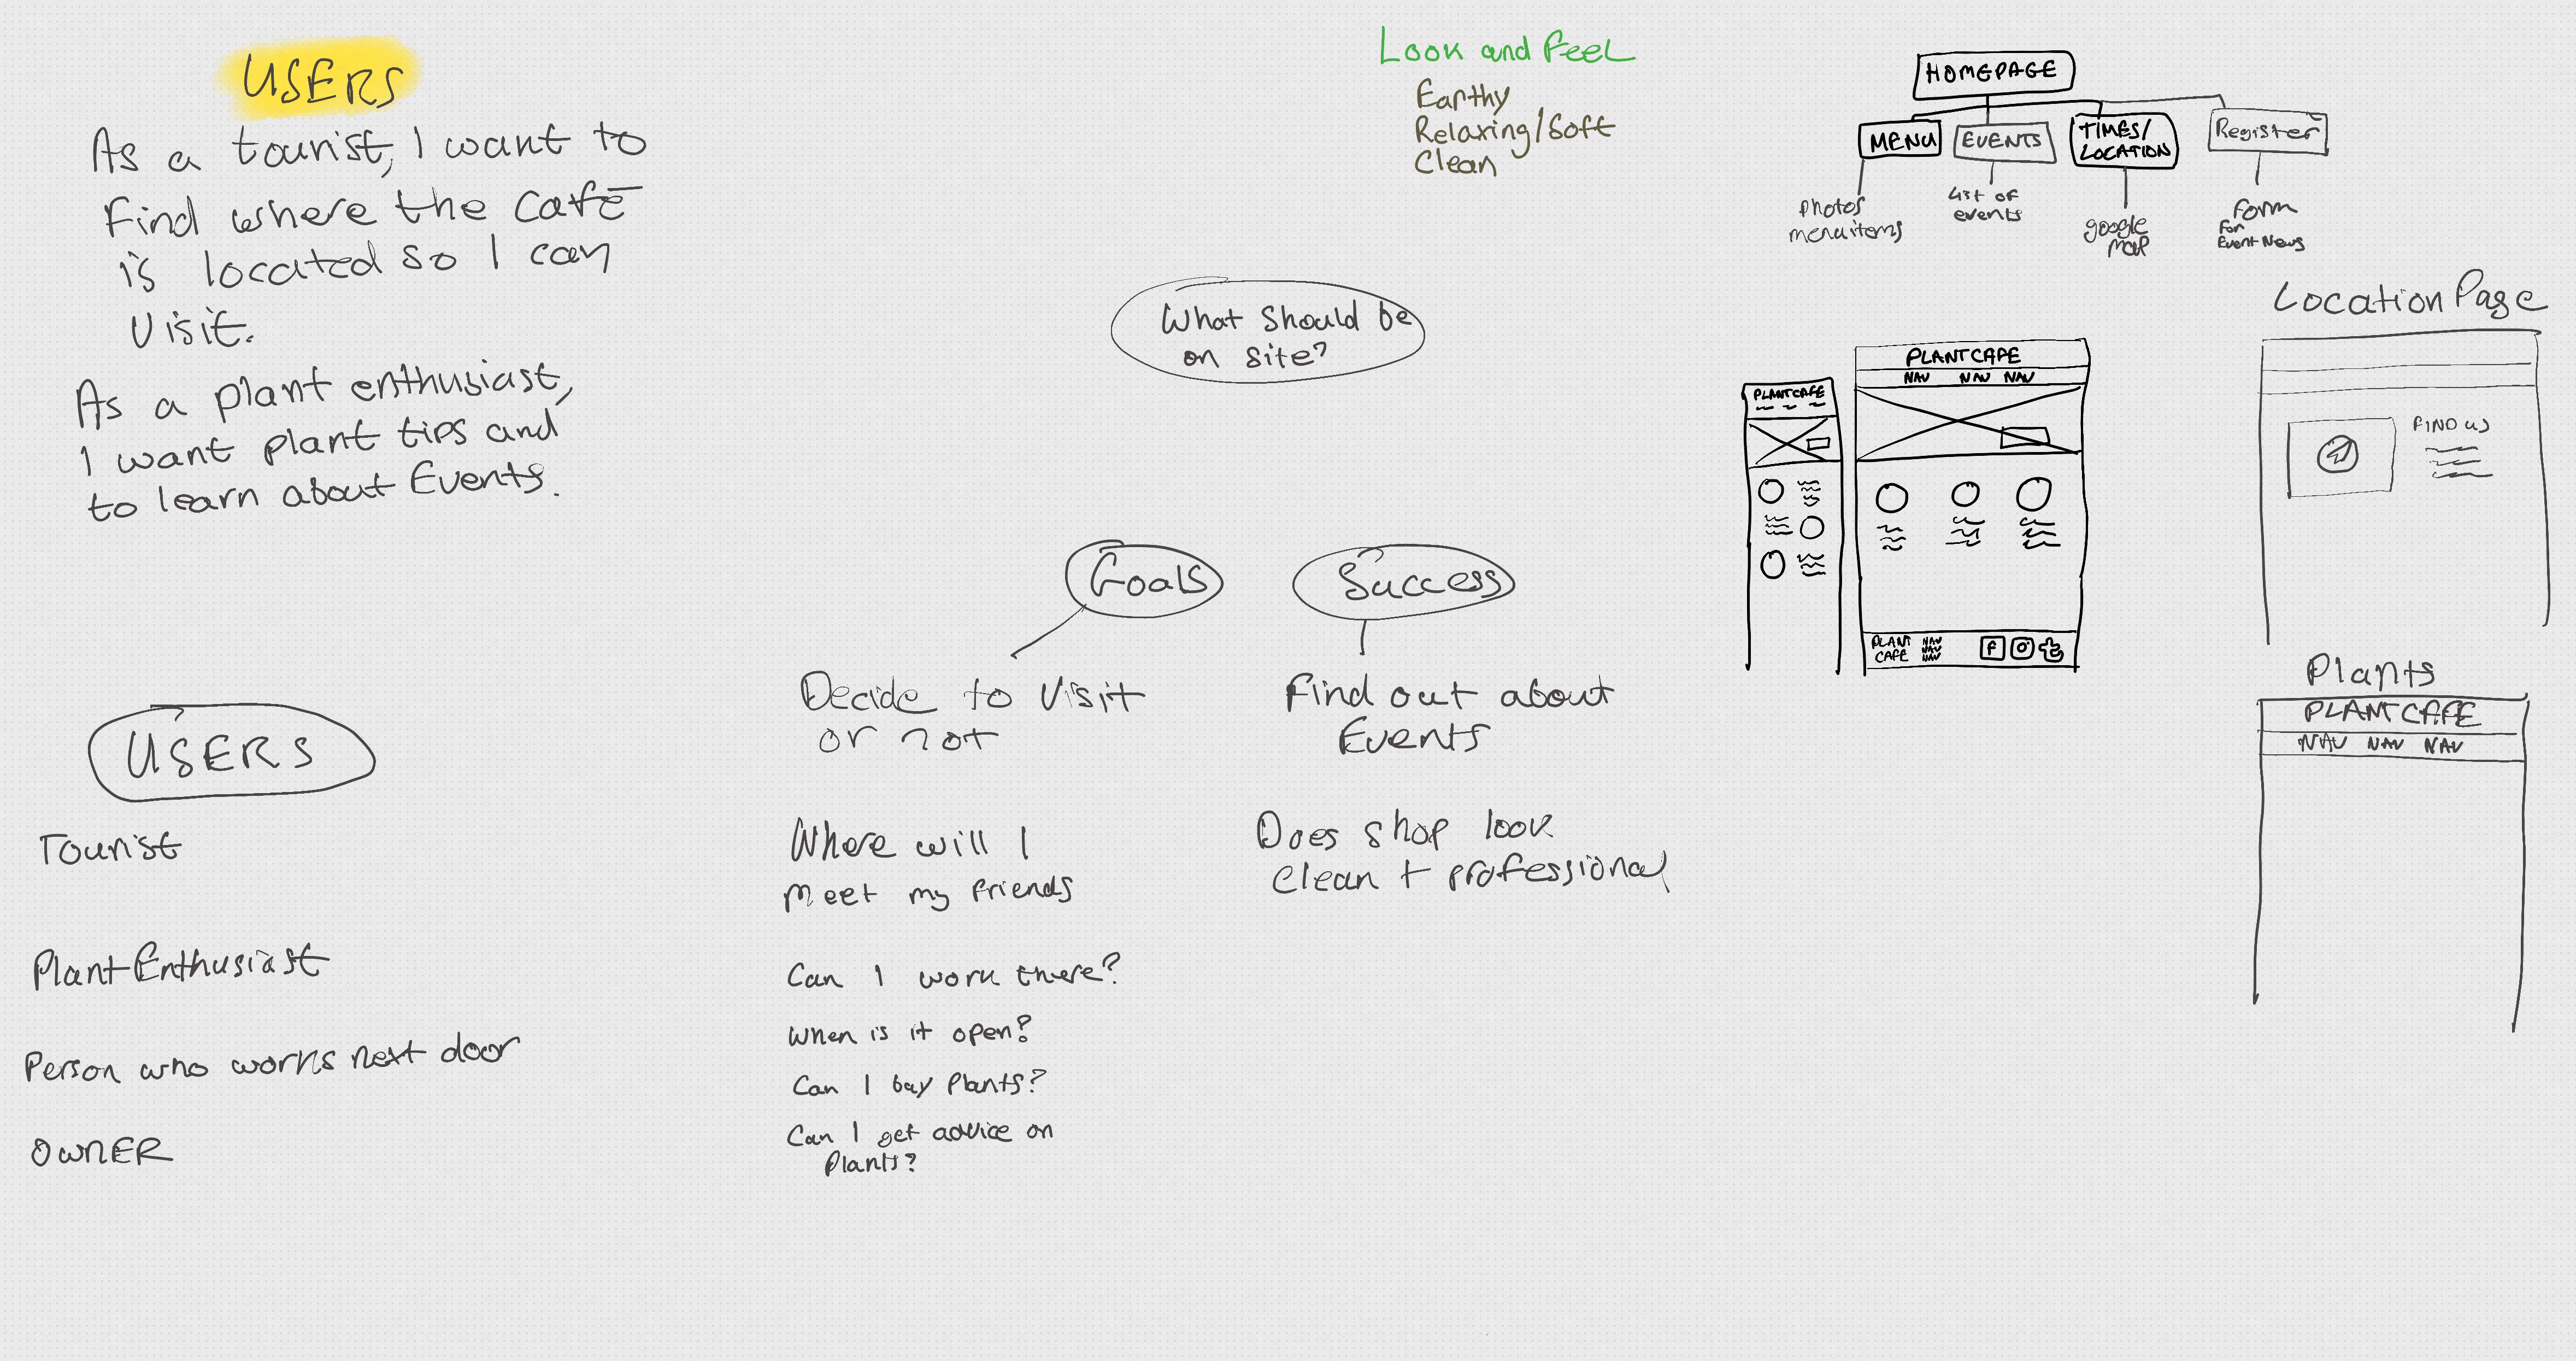 USERS
As a tourist, I want to
Find where the Café
is located so I can
Visit.
As a plant enthusiast,
I want plant tips and
to learn about Events.
USERS
Tourist
Plant Enthusiast
Person who works next door
OWNER
Look and Feel
Earthy
Relaxing/Soft
Clean
What should be
on site?
Goals
Decide to Visit
or not
Where will I
Meet my friends
Can I work there?
When is it open?
Can I buy plants?
Can I get advice on
Plants?
Success
Find out about
Events
Does shop look
clean + professional
HOMEPAGE
MENU
EVENTS
TIMES/
LOCATION
Register
Photos
menu items
List of
events
google
map
Form
For
Event News
PLANTCAFE
PLANTCAFE
NAV NAV NAV
PLANT
CAFE
NAV
NAV
NAV
f
t
Location Page
FIND US
Plants
PLANTCAFE
NAV NAV NAV